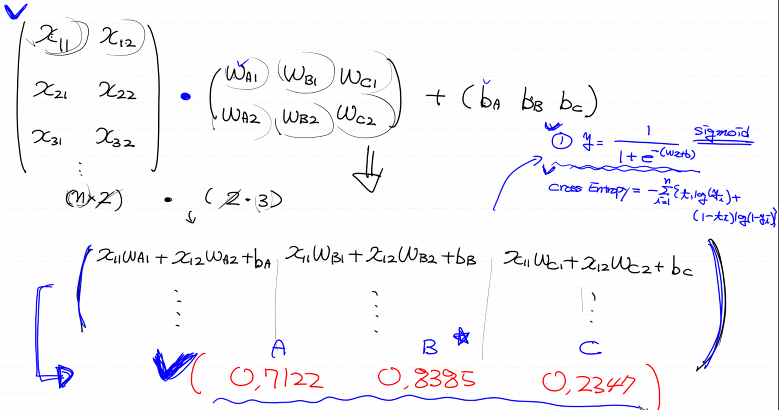 x₁₁ x₁₂
x₂₁ x₂₂
x₃₁ x₃₂
⋮
•
W_A1 W_B1 W_C1
W_A2 W_B2 W_C2
+ (b_A b_B b_C)
① y = 1 / (1 + e^-(wx+b)) sigmoid
cross Entropy = -Σ_{i=1}^{n} {t_i log(y_i) +
(1-t_i) log(1-y_i)}
(n×2) • (2·3)
x₁₁W_A1 + x₁₂W_A2 + b_A x₁₁W_B1 + x₁₂W_B2 + b_B x₁₁W_C1 + x₁₂W_C2 + b_C
⋮ ⋮ ⋮
A B C
(0,7122 0,8385 0,2347)